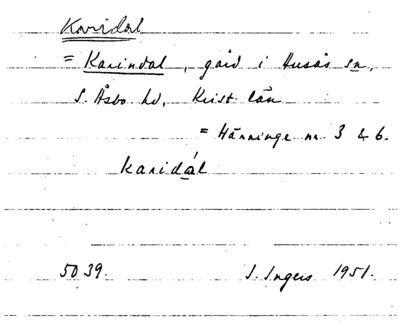 Karidal
= Karindal, gård i Husås sn,
S. Åsbo hd, Krist. län
= Hänninge nr 3 & 6.
karidál
5039. I. Ingers 1951.